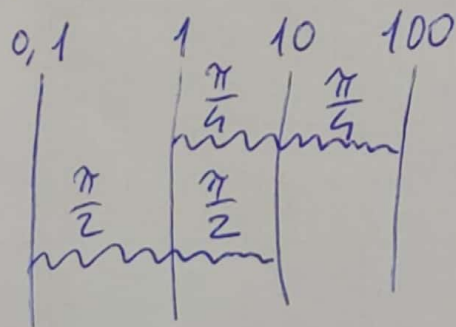 0,1 1 10 100
π/4 π/4
π/2 π/2